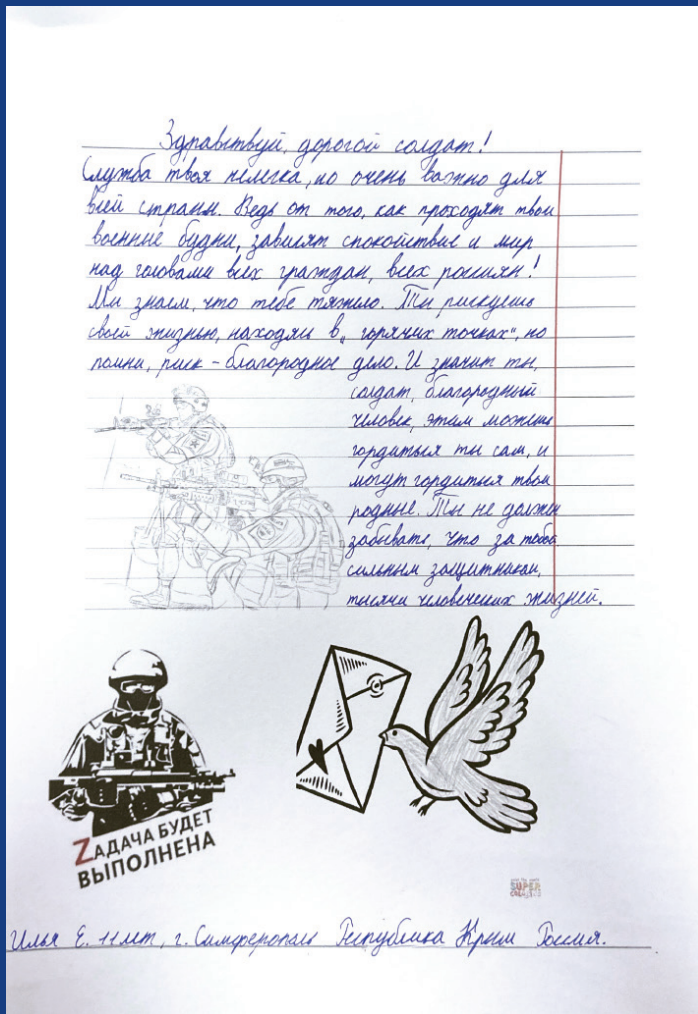 Здравствуй, дорогой солдат!
Служба твоя нелегка, но очень важно для
всей страны. Ведь от того, как проходят твои
военные будни, зависят спокойствие и мир
над головами всех граждан, всех россиян!
Мы знаем, что тебе тяжело. Ты рискуешь
своей жизнью, находясь в „горячих точках“, но
помни, риск – благородное дело. И значит ты,
солдат, благородный
человек, этим можешь
гордиться ты сам, и
могут гордиться твои
родные. Ты не должен
забывать, что за тобой
сильным защитником,
тысячи человеческих жизней.
ZАДАЧА БУДЕТ
ВЫПОЛНЕНА
SUPER
Илья Е. 11 лет, г. Симферополь Республика Крым Россия.